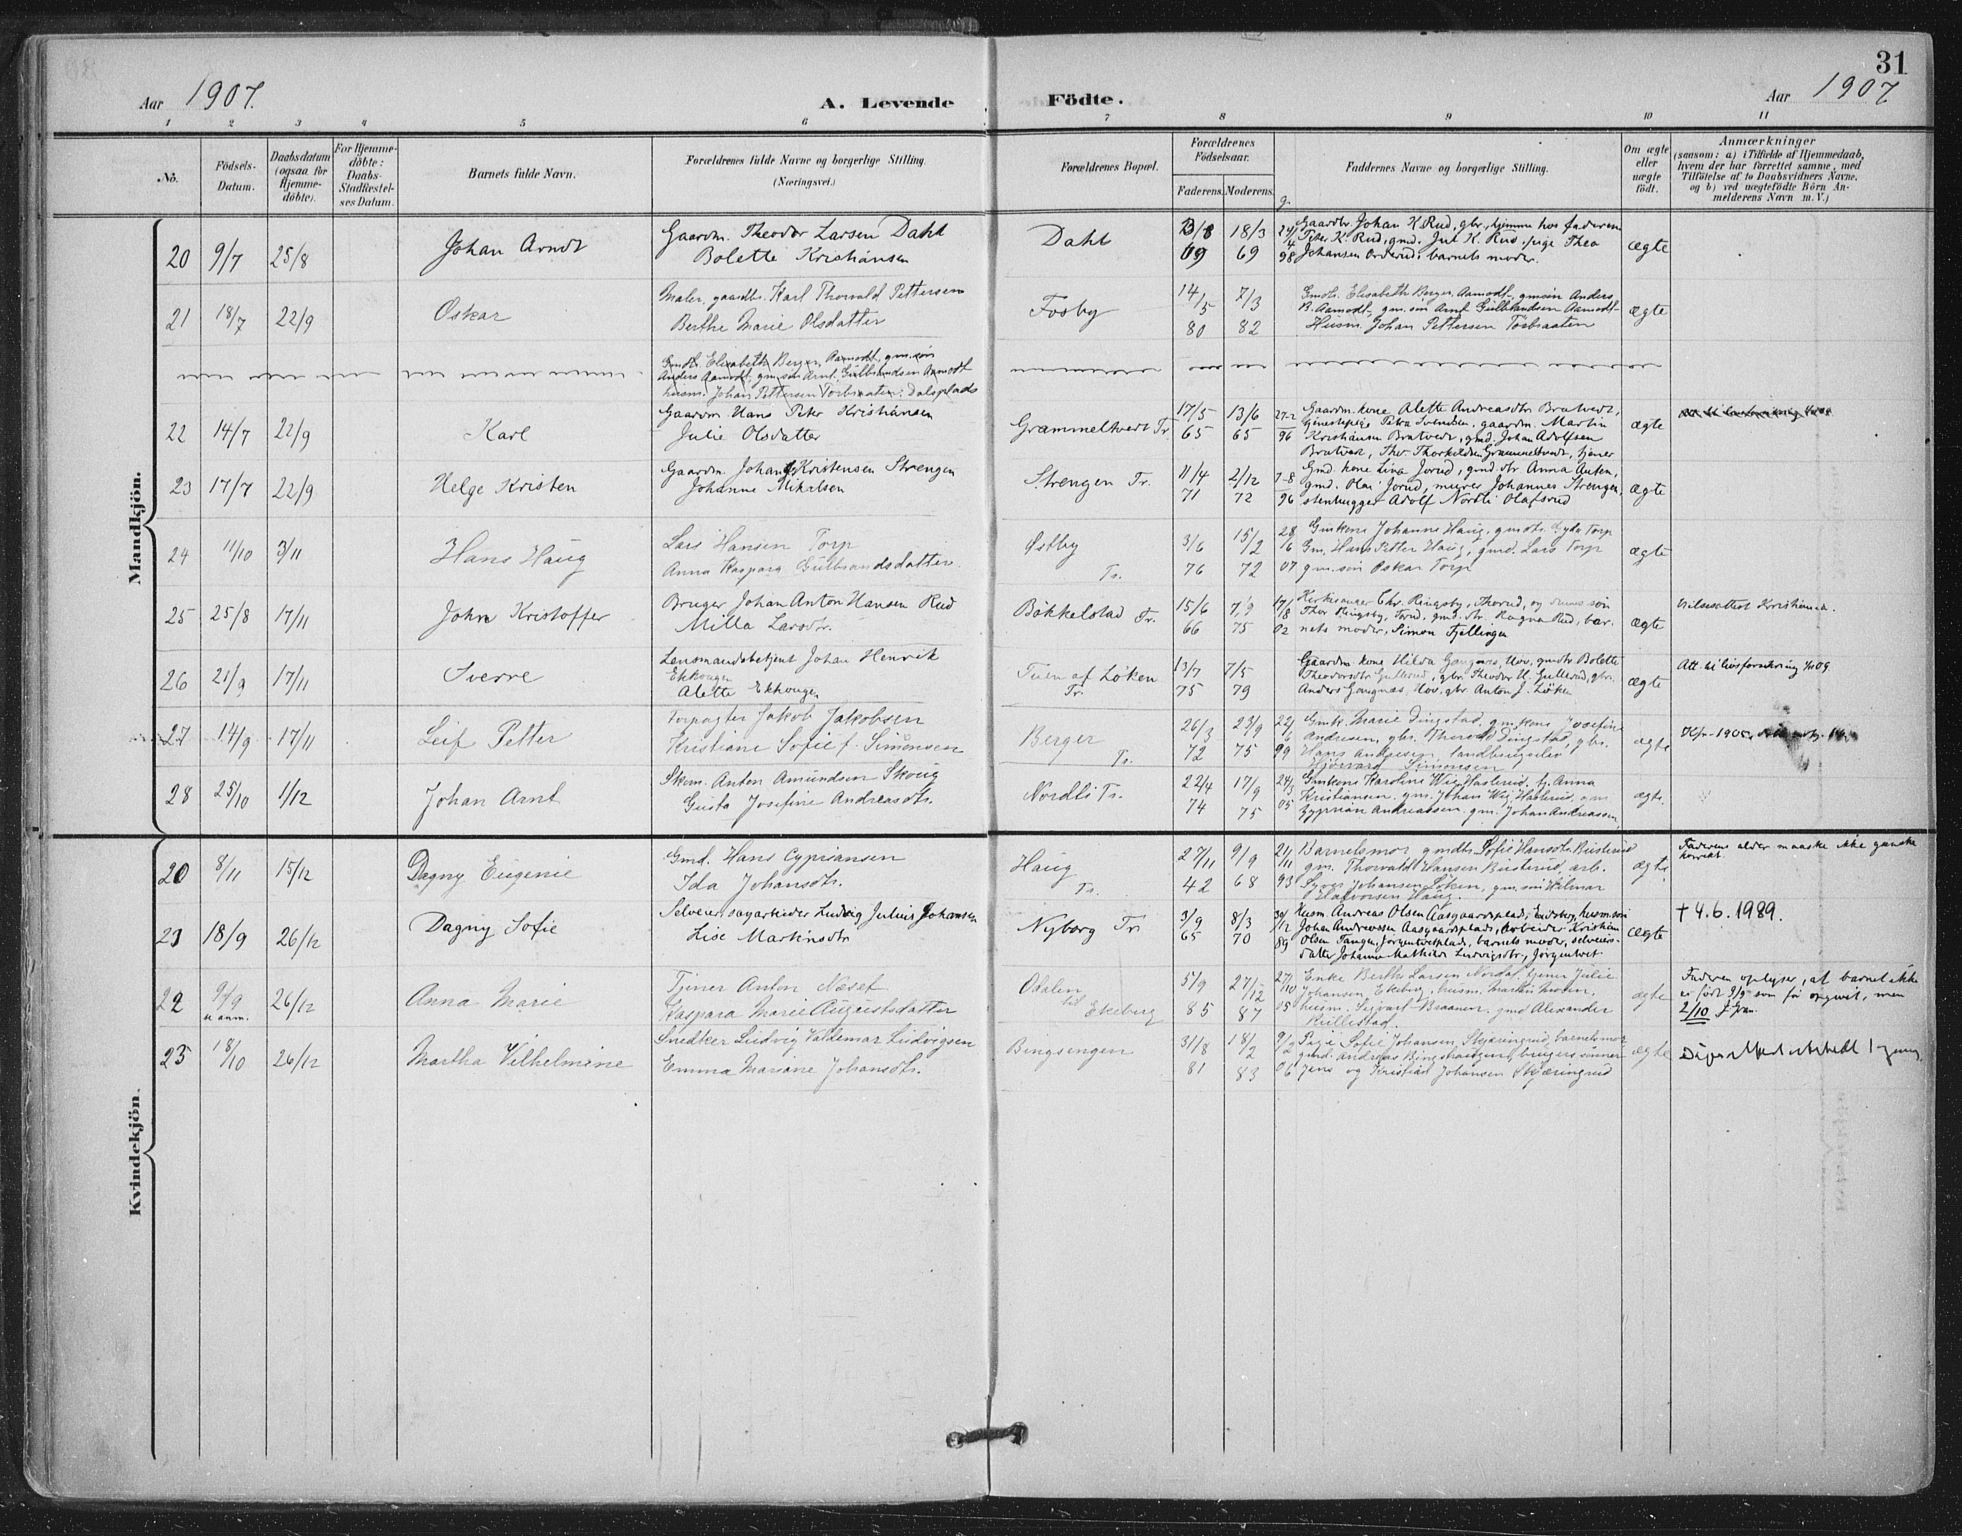 31
Aar 1907.
A. Levende Födte.
Aar 1907
1 2 3 4 5 6 7 8 9 10 11
No.
Födsels-Datum.
Daabsdatum (ogsaa for Hjemme-döbte).
For Hjemme-döbte: Daabs-Stadfæstel-ses Datum.
Barnets fulde Navn.
Forældrenes fulde Navne og borgerlige Stilling. (Næringsvei.)
Forældrenes Bopæl.
Forældrenes Födselsaar.
Faderens. Moderens.
Faddernes Navne og borgerlige Stilling.
Om ægte eller uægte födt.
Anmærkninger (saasom: a) i Tilfælde af Hjemmedaab, hvem der har forrettet samme, med Tilföielse af to Daabsvidners Navne, og b) ved uægtefödte Börn An-melderens Navn m. V.)
Mandkjön.
20 9/7 25/8 Johan Arndt
Gaardm. Theodor Larsen Dahl
Bolette Kristiansen
Dahl
18/3 69
Gaardbr Johan K. Rud, gbr., hjemme hos faderen
Peter K. Rud, gmd. Jul K. Rud, pige Thea
Johansen Orderud, barnets moder.
ægte
21 18/7 22/9 Oskar
Maler, gaardbr. Karl Thorvald Pettersen
Berthe Marie Olsdatter
Fosby
14/5 80 7/3 82
Gmdtr. Elisabeth Berger, Aamodt, gmsön Anders
B. Aamodt, gm. sön Arnt Gulbrandsen Aamodt
Husm. Johan Pettersen Törbraaten
ægte
Gmdtr. Elisabeth Berger, Aamodt, gm. sön
Anders Aamodt, gm. sön Arnt Gulbrandsen Aamodt
husm. Johan Pettersen Törbraaten, Dalsplads
22 14/7 22/9 Karl
Gaardm. Hans Peter Kristiansen
Julie Olsdatter
Grammeltvedt Tr.
17/5 65 13/6 65
27-2 96
Gaardm. kone Alette Andreasdtr Bratvedt,
Petra Svendsen, gaardm. Martin
Kristiansen Bratvedt, gmd. Johan Adolfsen
Bratvedt, Thv. Thorkildsen Grammeltvedt, tjener
ægte
23 17/7 22/9 Helge Kristen
Gaardm. Johan Kristensen Strengen
Johanne Mikalsen
Strengen Tr.
11/4 71 2/12 72
7-8 96
Gmd. kone Lina Jorud, gmd. dtr Anna Anten,
gmd. Olai Jorud, murer Johannes Strengen,
stenhugger Adolf Nordli Olafsrud
ægte
24 11/10 3/11 Hans Haug
Lars Hansen Torp
Anna Kaspara Gulbrandsdatter
Østby Tr.
3/6 76 15/2 72
28/6 07
Gmkone Johanne Haug, gmdtr. Gyda Torp
Gm. Hans Petter Haug, gmd. Lars Torp
gm. sön Oskar Torp
ægte
25 25/8 17/11 John Kristoffer
Bruger Johan Anton Hansen Rud
Milla Larsdtr.
Bökkelstad Tr.
15/6 66 7/9 75
02
Kirkesanger Chr. Ringsby, Thorud, og dennes sön
Thor Ringsby, Torud, gmd. dtr. Ragna Rud, bar-
nets moder, Simon Fjellingen
ægte
Vielsesattest Kristiania.
26 21/9 17/11 Sverre
Lensmandsbetjent Johan Henrik
Ekhougen
Alette Ekhougen
Tuen af Löken Tr.
13/7 75 7/5 79
Gaardm. kone Hilda Gangnæs, Hov, gmdtr Bolette
Theodorsdtr Gullerud, gbr. Theodor H. Gullerud, gbr.
Anders Gangnæs, Hov, gbr. Anton J. Löken
ægte
Att. til livsforsikring 1/1 09
27 14/9 17/11 Leif Petter
Forpagter Jakob Jakobsen
Kristiane Sofie f. Simonsen
Berger Tr.
26/3 72 23/9 75
22/6 99
Gmk. Marie Dingstad, gm.kone Josefine
Andresen, gbr. Thorvald Dingstad, gbr.
Hjörvard Simonsen
ægte
28 25/10 1/12 Johan Arnt
Skom. Anton Amundsen Skoug
Gusta Josefine Andreasdtr.
Nordli Tr.
22/4 74 17/9 75
24/3 05
Gmkone Karoline Wig Haslerud, tj. Anna
Kristiansen, gm. Johan Wig Haslerud, gm.
Zyprian Andreassen, gm. Johan Andreassen,
ægte.
Kvindekjön.
20 8/11 15/12 Dagny Eugenie
Gmd. Hans Cypriansen
Ida Johansdtr.
Haug Tr.
27/11 42 9/9 68
21/11 93
Barnetsmor, gmdtr. Sofie Hansdtr. Busterud
gm. Thorvald Hansen Busterud, arb.
Syver Johansen Löken, gm. sön Hilmar
Olafvorsen Haug.
ægte
Faderens alder maaske ikke ganske
korrekt.
21 18/9 26/12 Dagny Sofie
Selveier, sagarbeider Ludvig Julius Johansen
Lise Martinsdtr
Nyborg Tr.
3/9 65 8/3 70
30/12 89
Husm. Andreas Olsen Aasgaardsplads, Eidsberg, husm. sön
Johan Andreassen Aasgaardsplads, arbeider Kristian
Olsen Tangen, Jorgentvetplads, barnets moder, selveiers-
datter Johanne Mathilde Ludvigsdtr., Jörgentvet
ægte
† 4.6.1989.
22 9/9 26/12 Anna Marie
Tjener Anton Næset
Kaspara Marie Augustsdatter
Odalen til Ekeberg
5/9 85 27/12 87
27/10 05
Enke Berthe Larsen Nordal, tjener Julie
Johansen Ekeberg, husm. Martin Moen,
husm. Sigvart Braanen, gmd Alexander
Kullestad.
ægte
Faderen oplyser, at barnet ikke
er födt 9/9 som för opgivet, men
2/10
23 18/10 26/12 Martha Vilhelmine
Snedker Ludvig Valdemar Ludvigsen
Emma Mariane Johansdtr.
Bingsengen
31/8 81 18/2 83
9/2 06
Pige Sofie Johansen, Skjæringrud, barnets mor
gmd. Andreas Bingshaugen, brugers sönner
Jens og Kristian Johansen Skjæringrud
ægte